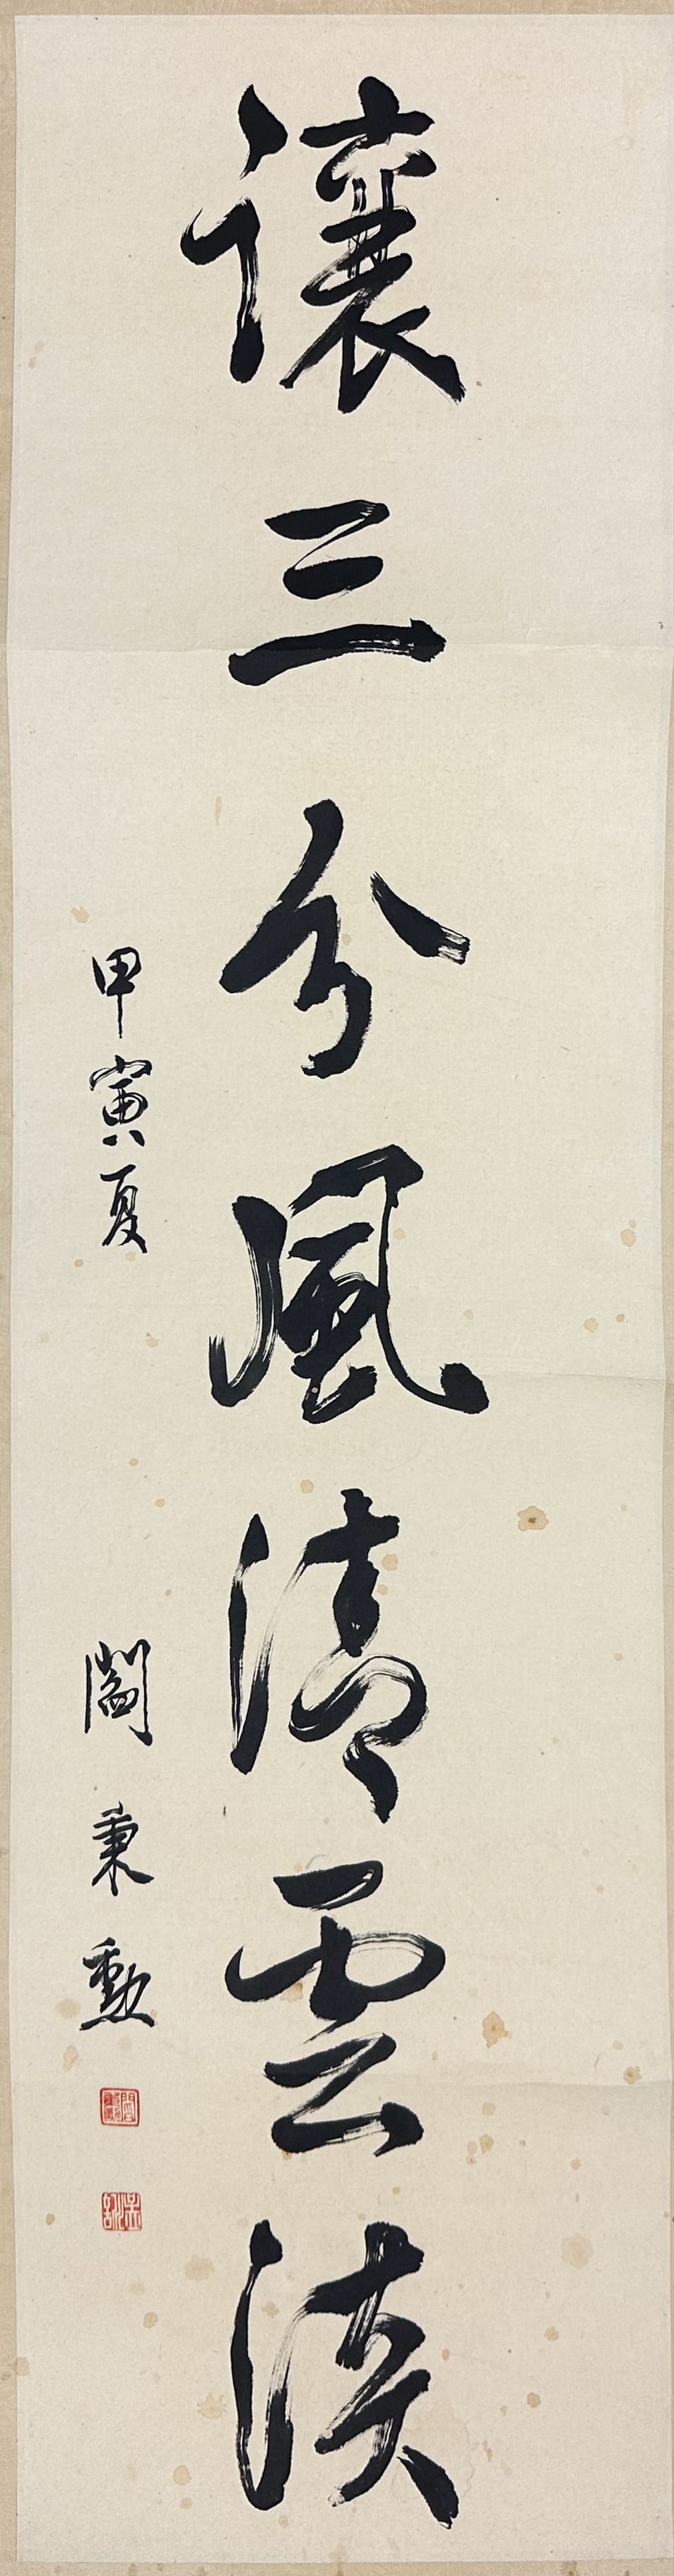 讓三分風清雲淡
甲寅夏
閻秉勳